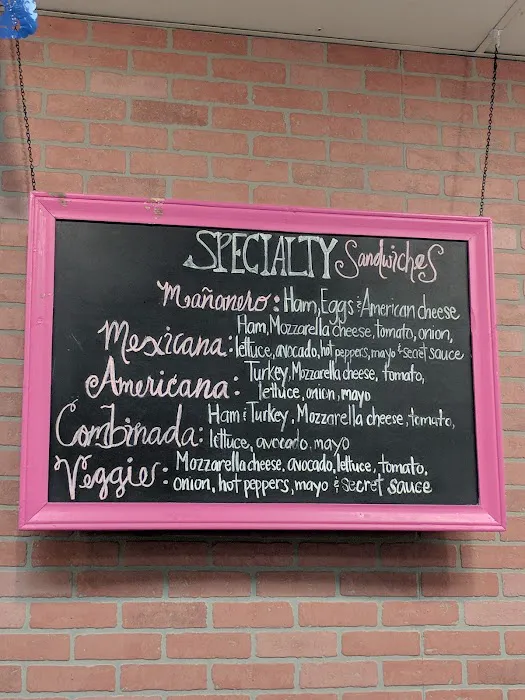 SPECIALTY Sandwiches
Mañanero: Ham, Eggs & American cheese
Mexicana: Ham, Mozzarella cheese, tomato, onion,
lettuce, avocado, hot peppers, mayo & secret sauce
Americana: Turkey, Mozzarella cheese, tomato,
lettuce, onion, mayo
Combinada: Ham & Turkey, Mozzarella cheese, tomato,
lettuce, avocado, mayo
Veggie: Mozzarella cheese, avocado, lettuce, tomato,
onion, hot peppers, mayo & secret sauce